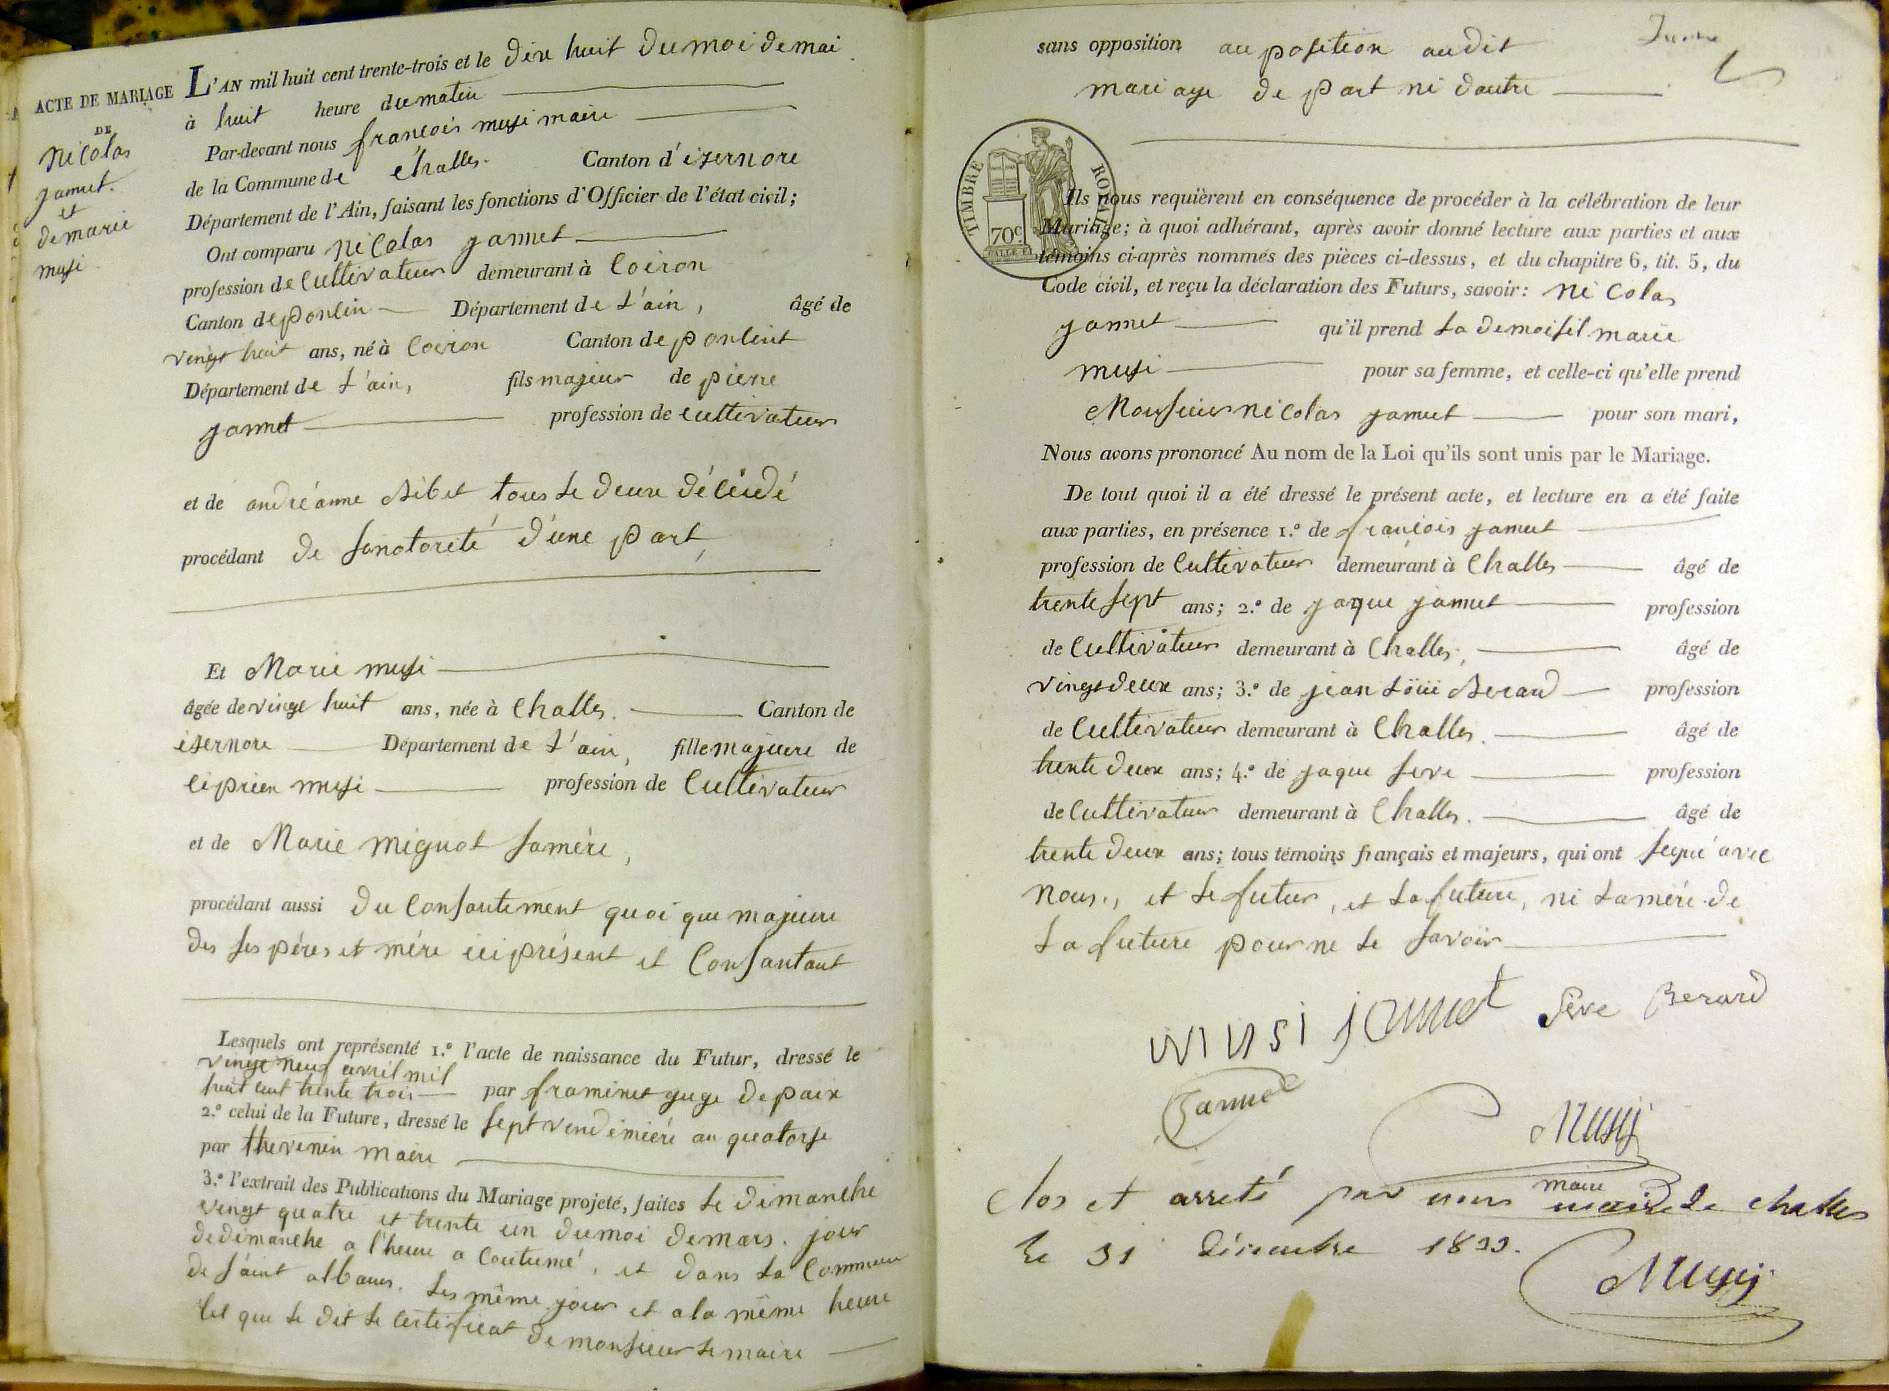 ACTE DE MARIAGE
DE
nicolas
jannet.
et
de marie
musi
L'AN mil huit cent trente-trois et le dixe huit du moi de mai
à huit heure du matin
Par-devant nous françois musi maire
de la Commune de challes. Canton d'izernore
Département de l'Ain, faisant les fonctions d'Officier de l'état civil;
Ont comparu nicolas jannet
profession de Cultivateur demeurant à Coiron
Canton de ponlin Département de L'ain, âgé de
vingt huit ans, né à Coiron Canton de ponlint
Département de L'ain, fils majeur de pierre
jannet profession de cultivateur
et de andréanne Bibet tous le deux décédé
procédant de sa notorité d'une part,
Et Marie musi
âgée de vingt huit ans, née à Challes. Canton de
izernore Département de L'ain, fille majeure de
ciprien musi profession de Cultivateur
et de Marie mignot sa mère,
procédant aussi du Consantement quoi que majeure
des ses pères et mère ici présent et Consantant
Lesquels ont représenté 1.º l'acte de naissance du Futur, dressé le
vingt neuf avril mil
huit cent trente trois par framinet juge de paix
2.º celui de la Future, dressé le sept vendémiére an quatorse
par thevenin maire
3.º l'extrait des Publications du Mariage projeté, faites le dimanche
vingt quatre et trente un du moi de mars. jour
de dimanche a l'heure a Coutumé, et dans la Commune
de saint albans. Les même jour et a la même heure
tel que le dit le certificat de monsieur le maire
sans opposition au position audit
mariage de part ni dautre
TIMBRE ROYAL
70 c.
Ils nous requièrent en conséquence de procéder à la célébration de leur
Mariage; à quoi adhérant, après avoir donné lecture aux parties et aux
témoins ci-après nommés des pièces ci-dessus, et du chapitre 6, tit. 5, du
Code civil, et reçu la déclaration des Futurs, savoir: nicolas
jannet qu'il prend la demoisil marie
musi pour sa femme, et celle-ci qu'elle prend
Monsieur nicolas jannet pour son mari,
Nous avons prononcé Au nom de la Loi qu'ils sont unis par le Mariage.
De tout quoi il a été dressé le présent acte, et lecture en a été faite
aux parties, en présence 1.º de françois jannet
profession de Cultivateur demeurant à Challes âgé de
trente sept ans; 2.º de jaque jannet profession
de Cultivateur demeurant à Challes, âgé de
vingt deux ans; 3.º de jean Loüi Berard profession
de Cultivateur demeurant à Challes. âgé de
trente deux ans; 4.º de jaque seve profession
de Cultivateur demeurant à Challes. âgé de
trente deux ans; tous témoins français et majeurs, qui ont signé avec
nous, et le futur, et la future, ni la mére de
la future pour ne le savoir
musi jannet Séve Berard
Jannet
Musy
maire
Clos et arreté par nous maire de challes
le 31 décembre 1833.
Musy